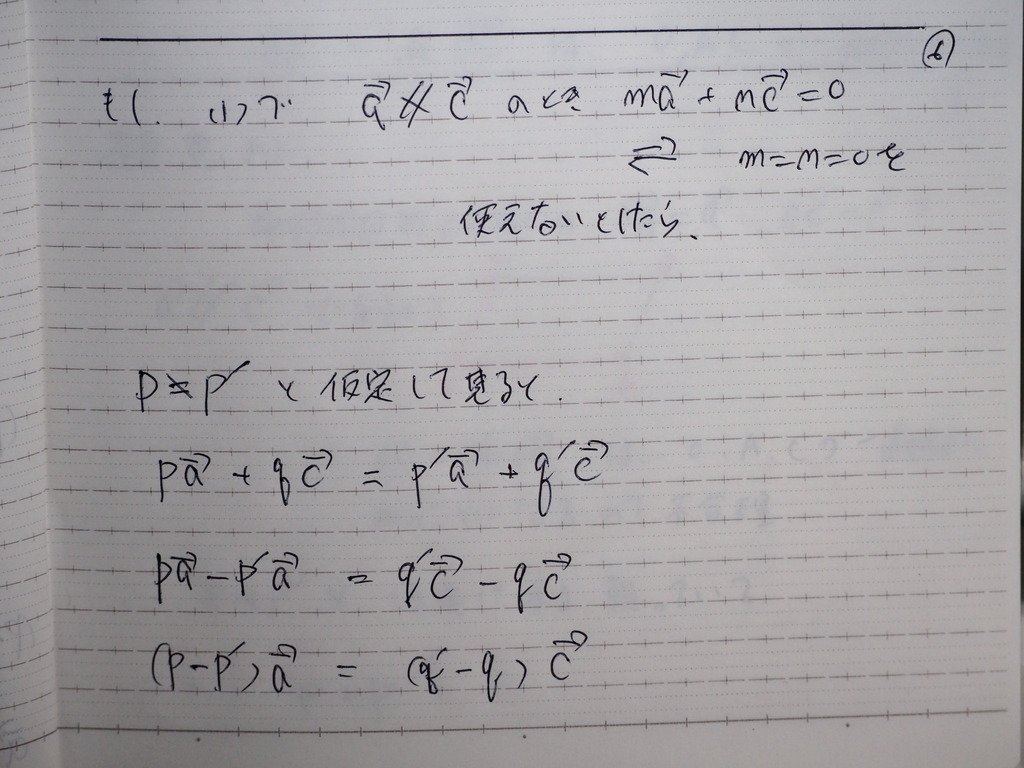 ⑥
もし (1)で a⃗ ∦ c⃗ のとき ma⃗ + nc⃗ = 0
⇄ m = n = 0を
使えないとしたら、
p ≠ p′ と仮定して見ると.
pa⃗ + qc⃗ = p′a⃗ + q′c⃗
pa⃗ - p′a⃗ = q′c⃗ - qc⃗
(p - p′)a⃗ = (q′ - q)c⃗